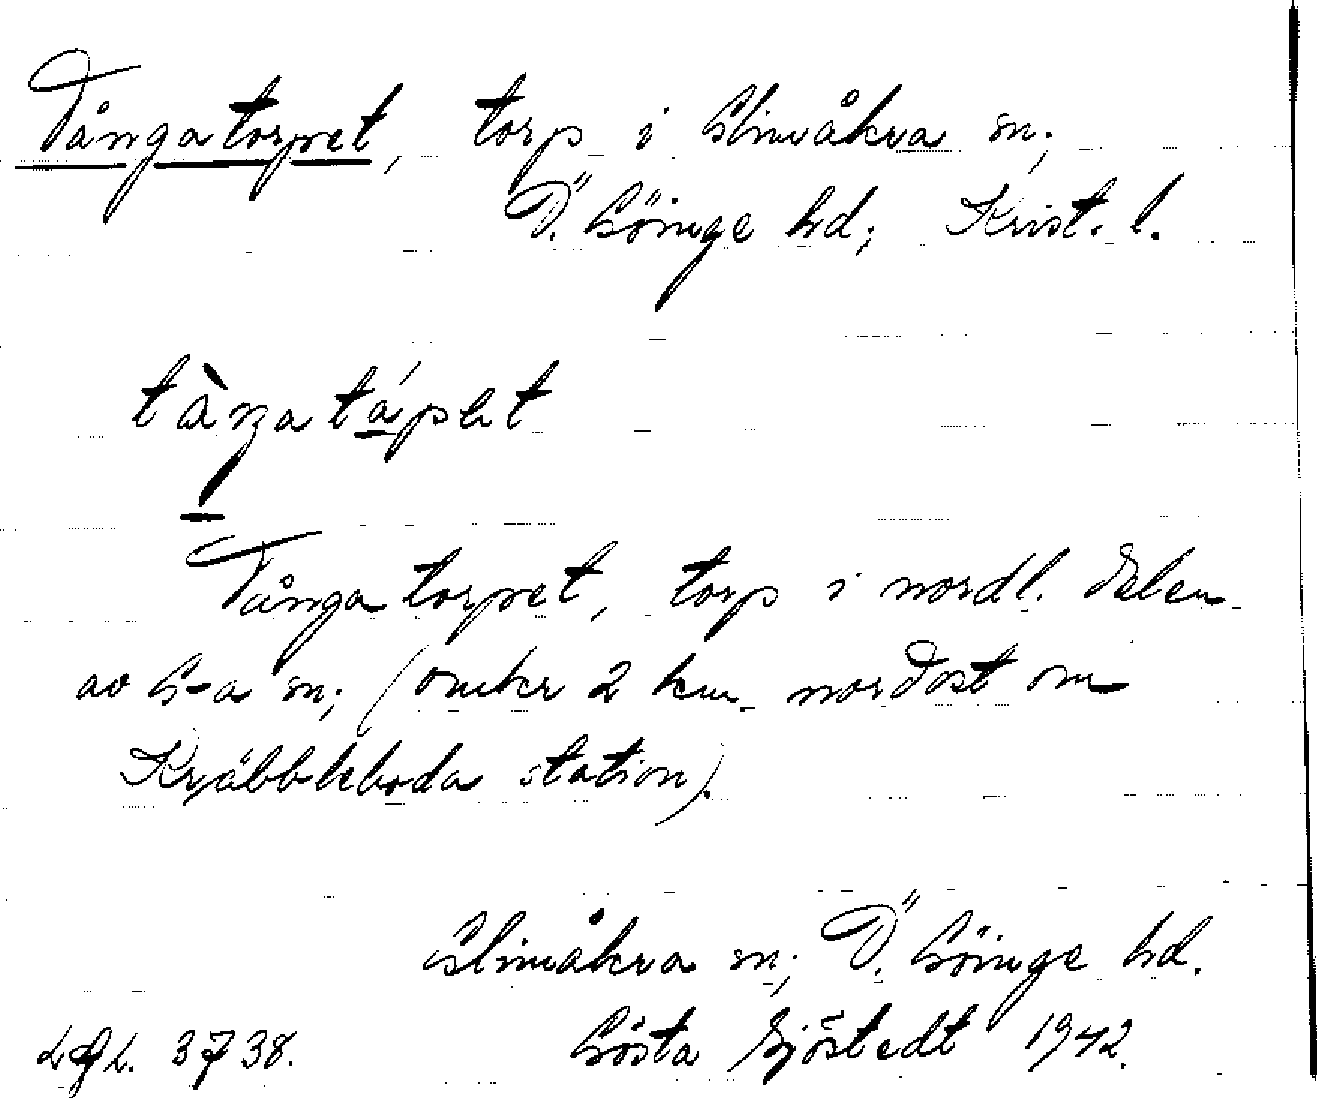 Tångatorpet, torp i Slimåkra sn;
Ö. Göinge hd; Krist. l.
Tångatorpet, torp i nordl. delen
av S-a sn; (omkr 2 km. nordost om
Kräbbleboda station).
Slimåkra sn; Ö. Göinge hd.
Gösta Sjöstedt 1942.
LAL. 3738.